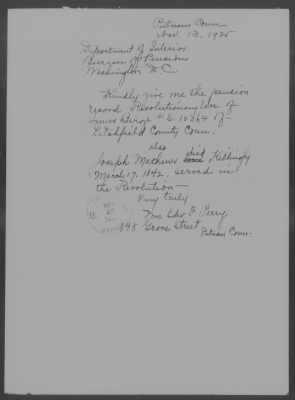 Putnam Conn
Nov. 13, 1925
Department of Interior
Bureau of Pensions
Washington D.C.
Kindly give me the pension
record Revolutionary War of
# S. 10364 of
Litchfield County Conn.
also
Joseph Mathews died Killingly
March 17, 1842, served in
the Revolution—
Very truly
Mrs. Edw. F. Perry
Grove Street
Putnam Conn.